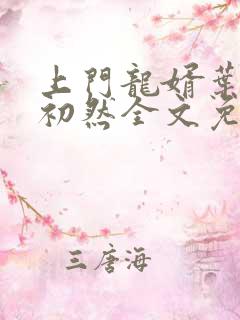 上門龍婿葉
初然全文免
三唐海